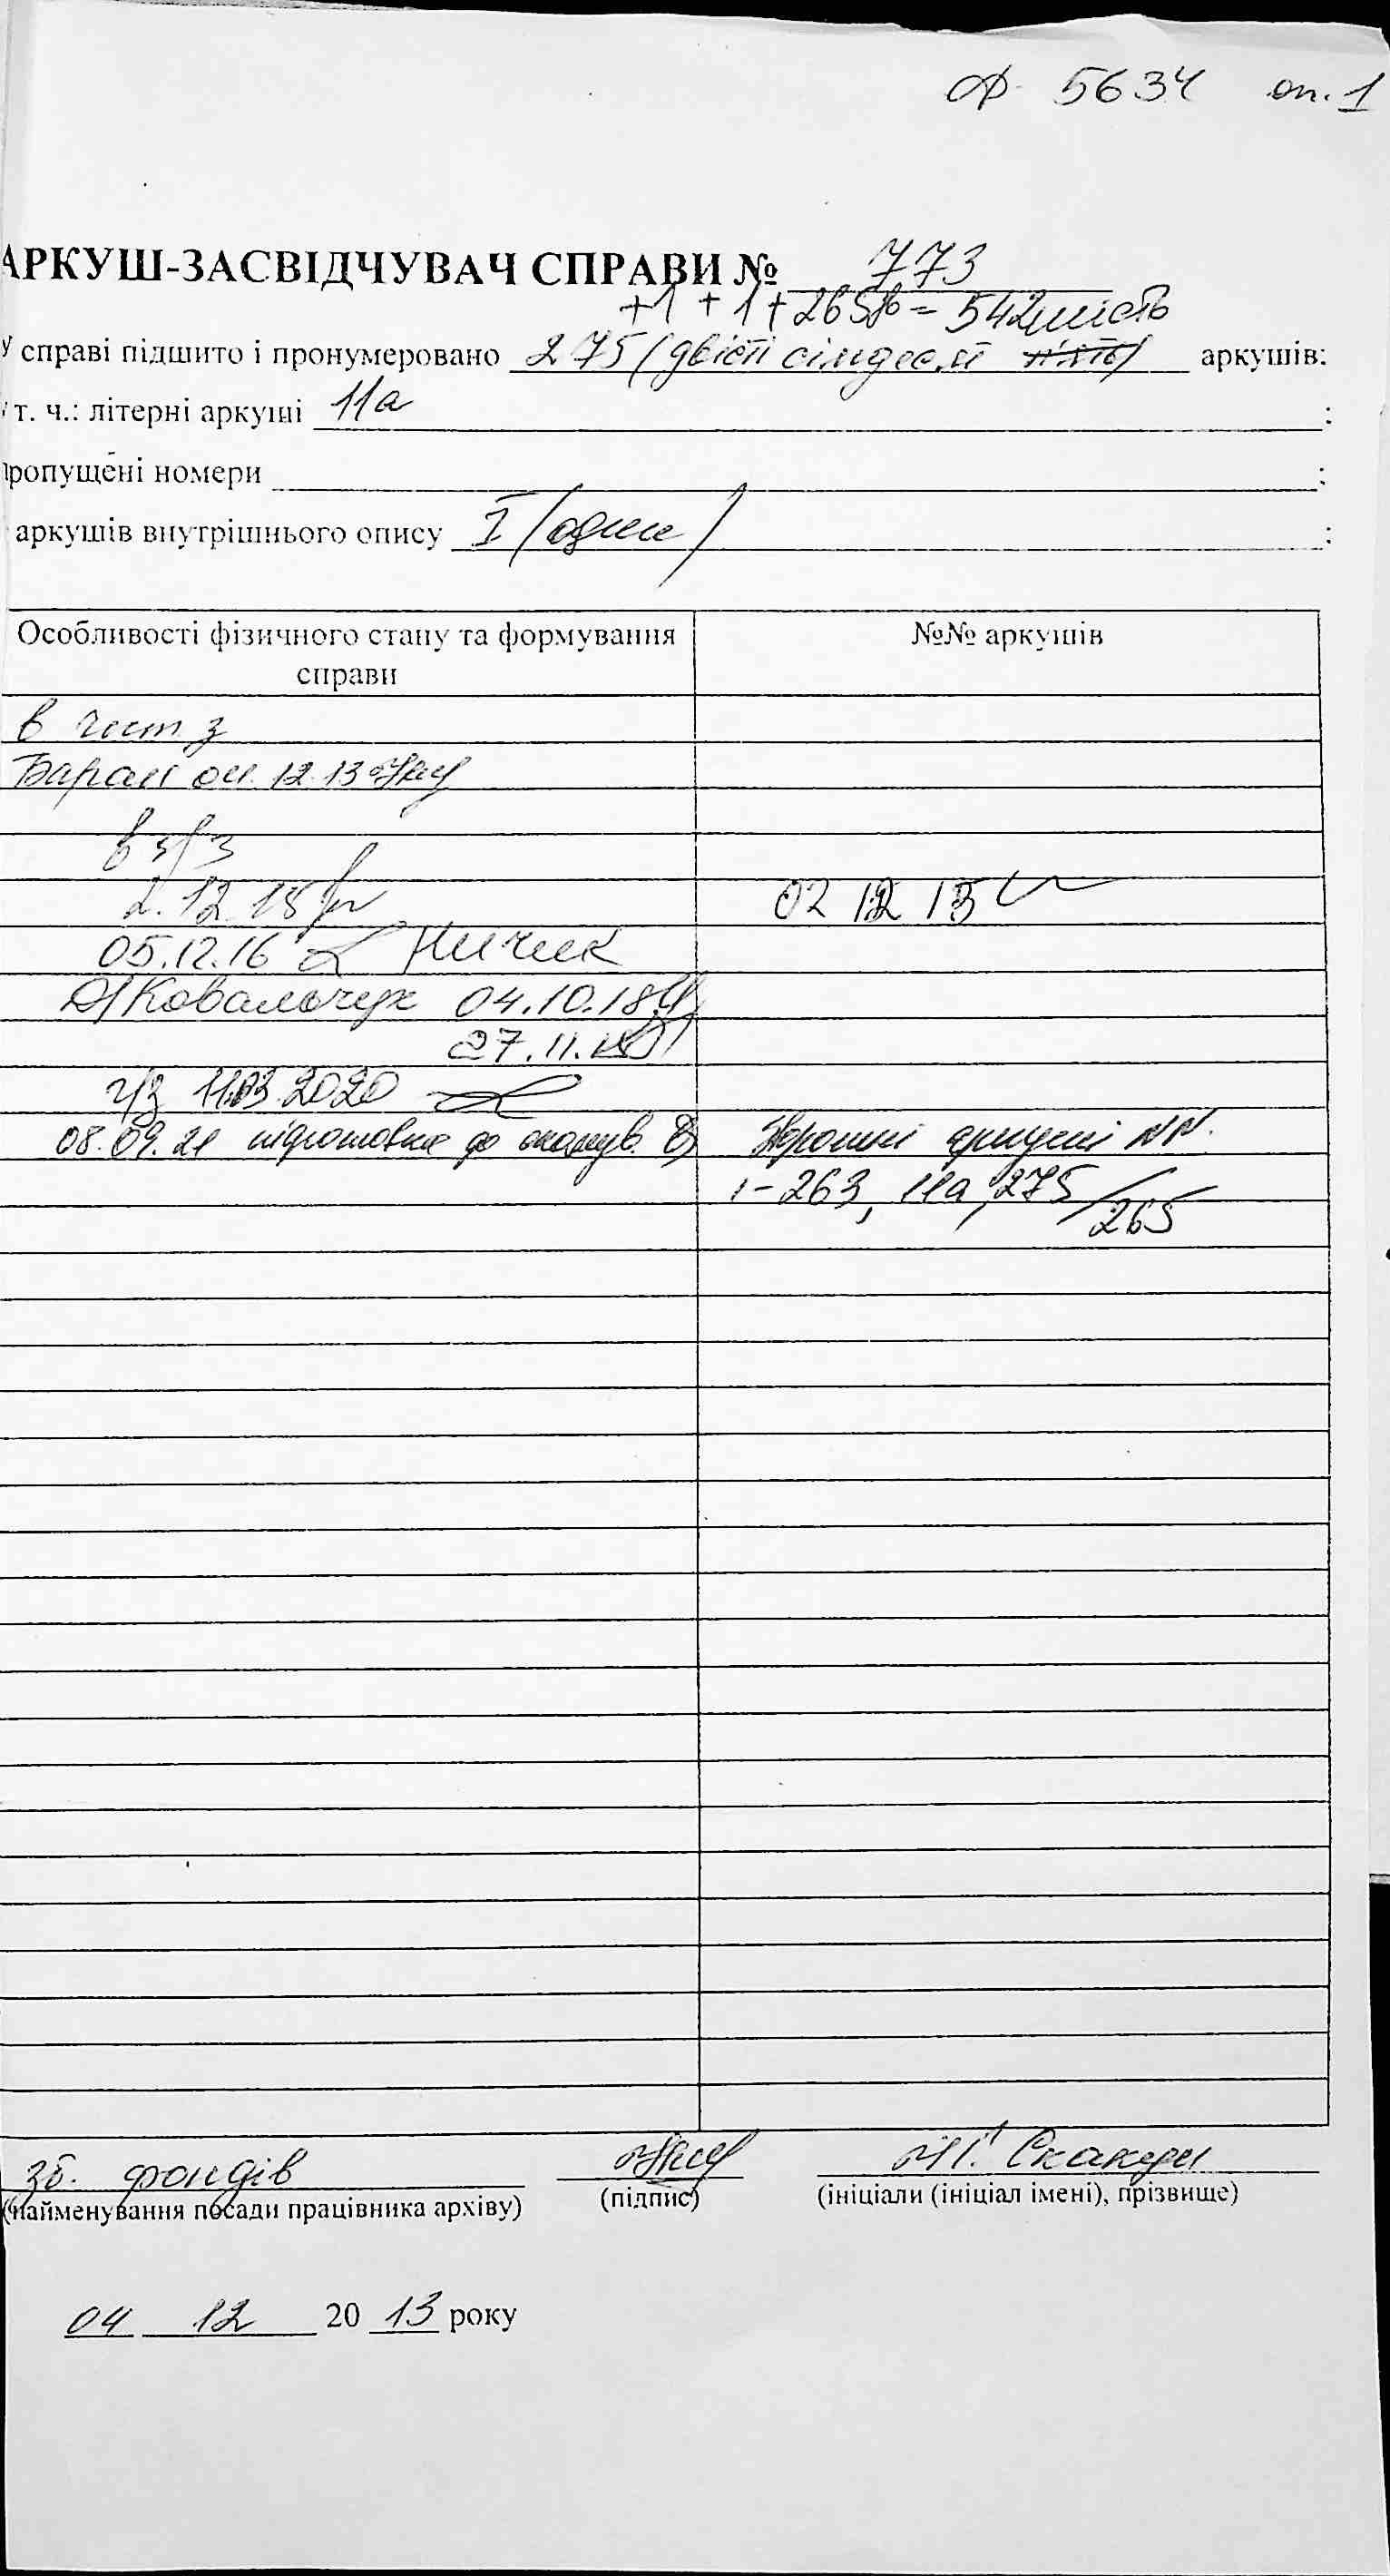 Ф 5634 оп. 1
АРКУШ-ЗАСВІДЧУВАЧ СПРАВИ № 773
+1 + 1 + 265 = 542 шість
У справі підшито і пронумеровано 275 (двісті сімдесят п'ять) аркушів:
т. ч.: літерні аркуші 11а ;
пропущені номери ;
аркушів внутрішнього опису I (один) ;
Особливості фізичного стану та формування справи
№№ аркушів
в чит. з
Баран 12.13
в ч/з
2.12.15
02 12 15
05.12.16
Ковальчук 04.10.18
27.11.18
ч/з 11.03.2020
08.09.21 підготовка до сканув.
Зворотні аркуші NN.
1-263, 11а, 275 / 265
зб. фондів
(найменування посади працівника архіву)
(підпис)
(ініціали (ініціал імені), прізвище)
04 12 20 13 року